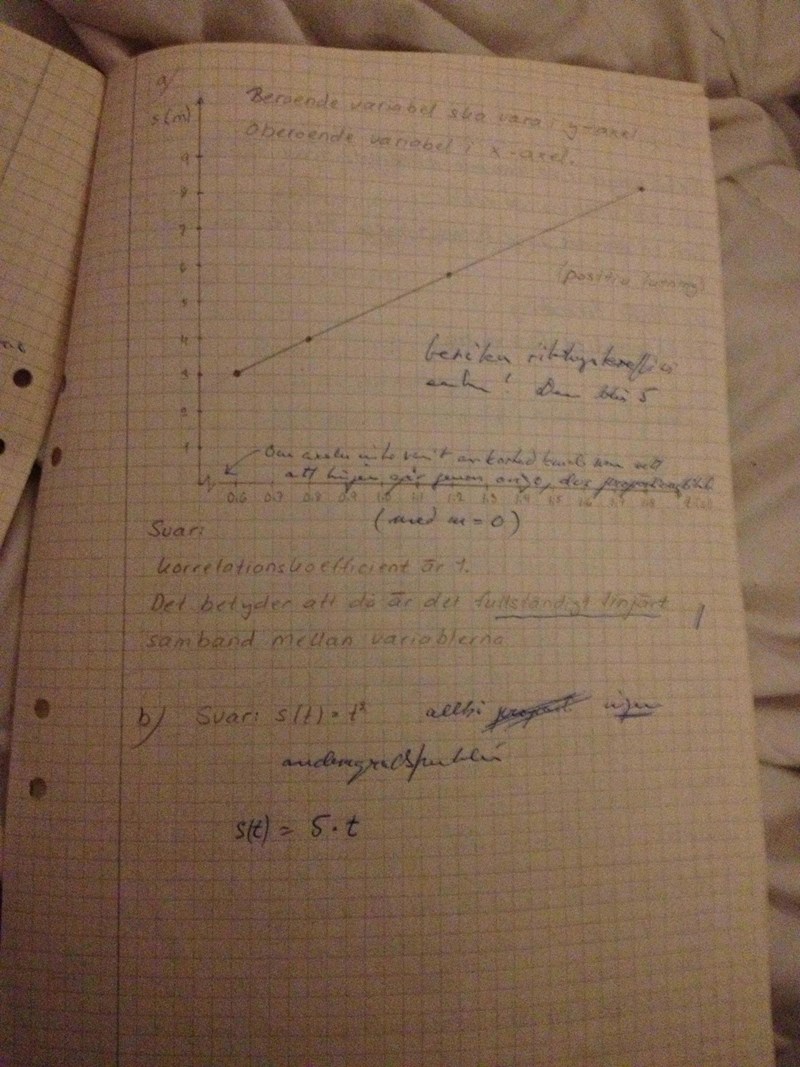 a)
s(m)
Beroende variabel ska vara i y-axel
Oberoende variabel i x-axel.
9
8
7
6
(positiv lutning)
5
4
beräkna
3
! Den blir 5
2
1
Om axeln inte varit
att linjen går genom origo, dvs
0.6 0.7 0.8 0.9 1.0 1.1 1.2 1.3 1.4 1.5 1.6 1.7 1.8
(med m=0)
Svar:
Korrelationskoefficient är 1.
Det betyder att då är det fullständigt linjärt
samband mellan variablerna
b) Svar: s(t) = t² alltså ingen
s(t) = 5·t